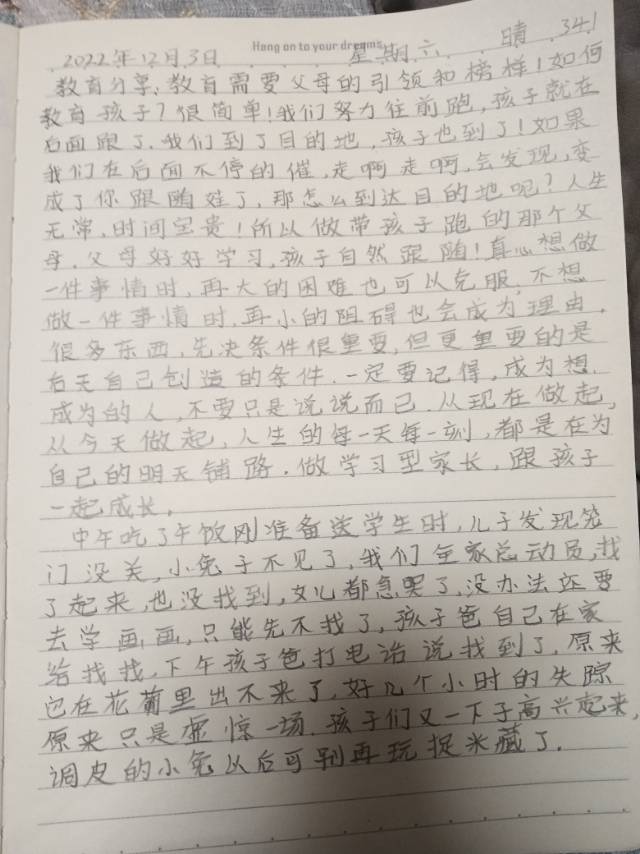 Hang on to your dreams
2022年12月3日 星期六 晴 341
教育分享:教育需要父母的引领和榜样!如何
教育孩子?很简单!我们努力往前跑,孩子就在
后面跟了.我们到了目的地,孩子也到了!如果
我们在后面不停的催,走啊走啊,会发现,变
成了你跟随娃了,那怎么到达目的地呢?人生
无常,时间宝贵!所以做带孩子跑的那个父
母.父母好好学习,孩子自然跟随!真心想做
一件事情时,再大的困难也可以克服,不想
做一件事情时,再小的阻碍也会成为理由.
很多东西,先决条件很重要,但更重要的是
后天自己创造的条件.一定要记得,成为想
成为的人,不要只是说说而已.从现在做起,
从今天做起,人生的每一天每一刻,都是在为
自己的明天铺路.做学习型家长,跟孩子
一起成长。
中午吃了午饭刚准备送学生时,儿子发现笼
门没关,小兔子不见了,我们全家总动员,找
了起来,也没找到,女儿都急哭了,没办法还要
去学画画,只能先不找了,孩子爸自己在家
给找找,下午孩子爸打电话说找到了,原来
它在花蔔里出不来了,好几个小时的失踪
原来只是虚惊一场.孩子们又一下子高兴起来,
调皮的小兔以后可别再玩捉米藏了.